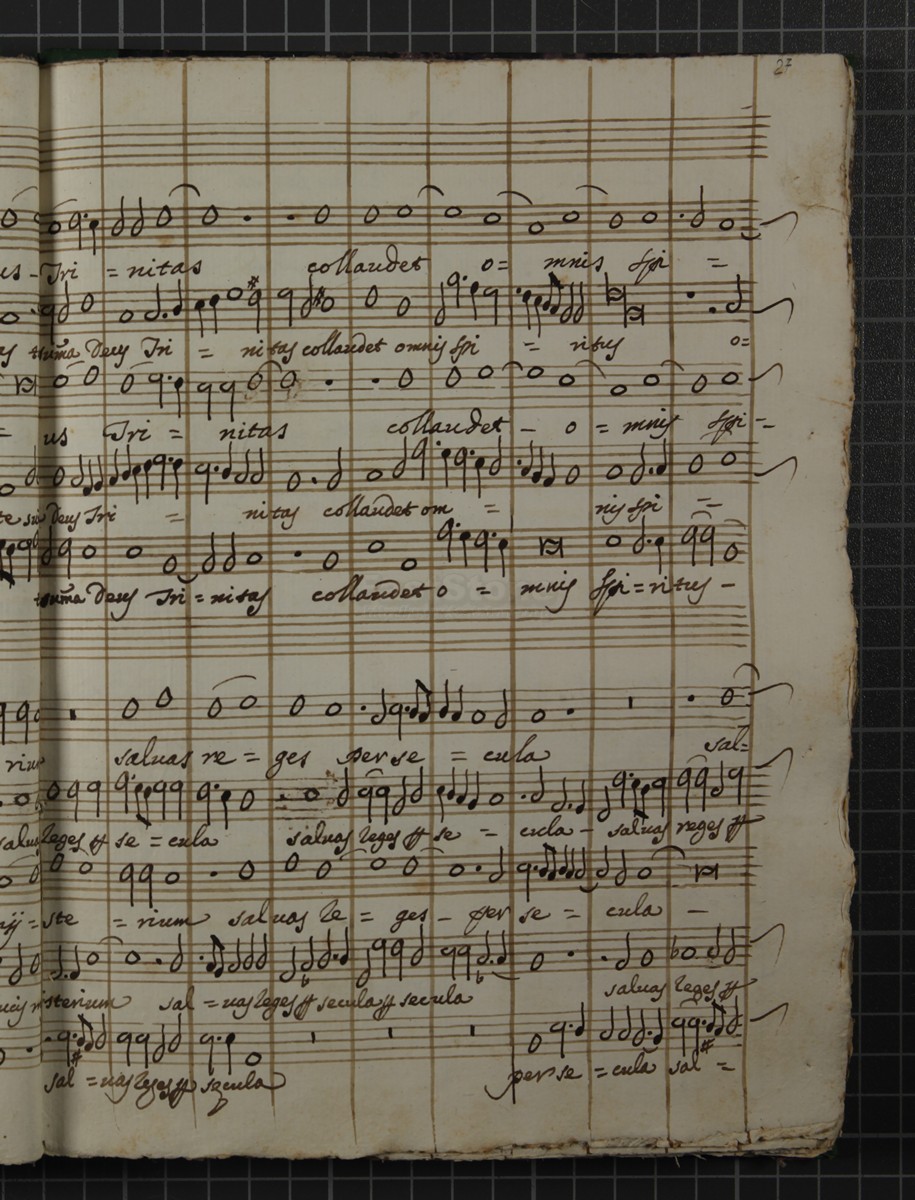 27
us - Tri = nitas collaudet o = mnis spi =
Deus Tri = nitas collaudet omnis spi = ritus o=
= us Tri = nitas collaudet - o = mnis spi -
Deus Tri = nitas collaudet om = nis spi =
Deus Tri = nitas collaudet o = mnis spi = ritus -
rium saluas re = ges per se = cula sal=
reges se = cula saluas reges se = cula - saluas reges
ste = rium saluas re = ges - per se = cula -
misterium sal = uas reges secula secula saluas reges
sal = uas reges secula per se = cula sal =